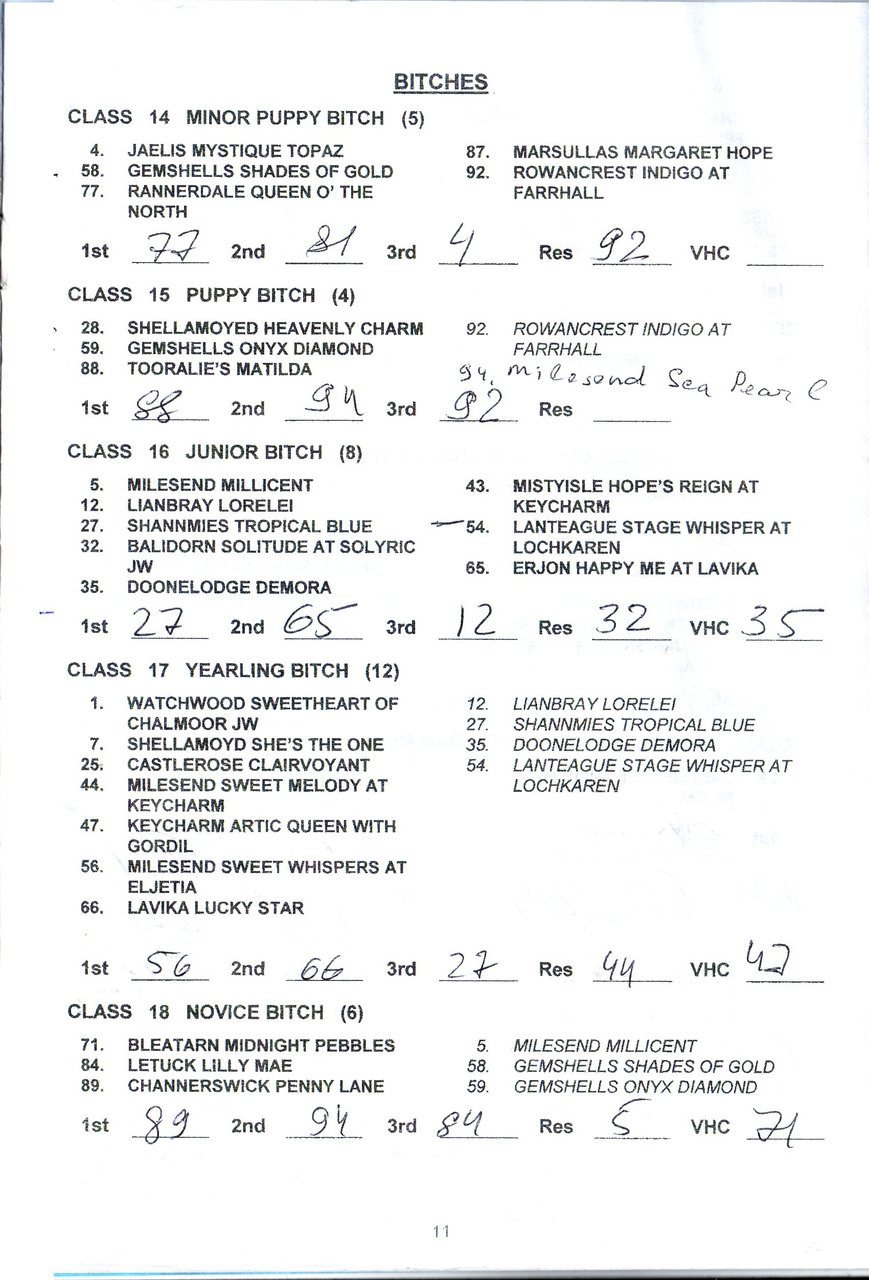 BITCHES
CLASS 14 MINOR PUPPY BITCH (5)
4. JAELIS MYSTIQUE TOPAZ
58. GEMSHELLS SHADES OF GOLD
77. RANNERDALE QUEEN O' THE
NORTH
87. MARSULLAS MARGARET HOPE
92. ROWANCREST INDIGO AT
FARRHALL
1st 77 2nd 81 3rd 4 Res 92 VHC
CLASS 15 PUPPY BITCH (4)
28. SHELLAMOYED HEAVENLY CHARM
59. GEMSHELLS ONYX DIAMOND
88. TOORALIE'S MATILDA
92. ROWANCREST INDIGO AT
FARRHALL
94. Milesend Sea Pearl
1st 88 2nd 94 3rd 92 Res
CLASS 16 JUNIOR BITCH (8)
5. MILESEND MILLICENT
12. LIANBRAY LORELEI
27. SHANNMIES TROPICAL BLUE
32. BALIDORN SOLITUDE AT SOLYRIC
JW
35. DOONELODGE DEMORA
43. MISTYISLE HOPE'S REIGN AT
KEYCHARM
54. LANTEAGUE STAGE WHISPER AT
LOCHKAREN
65. ERJON HAPPY ME AT LAVIKA
1st 27 2nd 65 3rd 12 Res 32 VHC 35
CLASS 17 YEARLING BITCH (12)
1. WATCHWOOD SWEETHEART OF
CHALMOOR JW
7. SHELLAMOYD SHE'S THE ONE
25. CASTLEROSE CLAIRVOYANT
44. MILESEND SWEET MELODY AT
KEYCHARM
47. KEYCHARM ARTIC QUEEN WITH
GORDIL
56. MILESEND SWEET WHISPERS AT
ELJETIA
66. LAVIKA LUCKY STAR
12. LIANBRAY LORELEI
27. SHANNMIES TROPICAL BLUE
35. DOONELODGE DEMORA
54. LANTEAGUE STAGE WHISPER AT
LOCHKAREN
1st 56 2nd 66 3rd 27 Res 44 VHC 47
CLASS 18 NOVICE BITCH (6)
71. BLEATARN MIDNIGHT PEBBLES
84. LETUCK LILLY MAE
89. CHANNERSWICK PENNY LANE
5. MILESEND MILLICENT
58. GEMSHELLS SHADES OF GOLD
59. GEMSHELLS ONYX DIAMOND
1st 89 2nd 94 3rd 84 Res 5 VHC 71
11